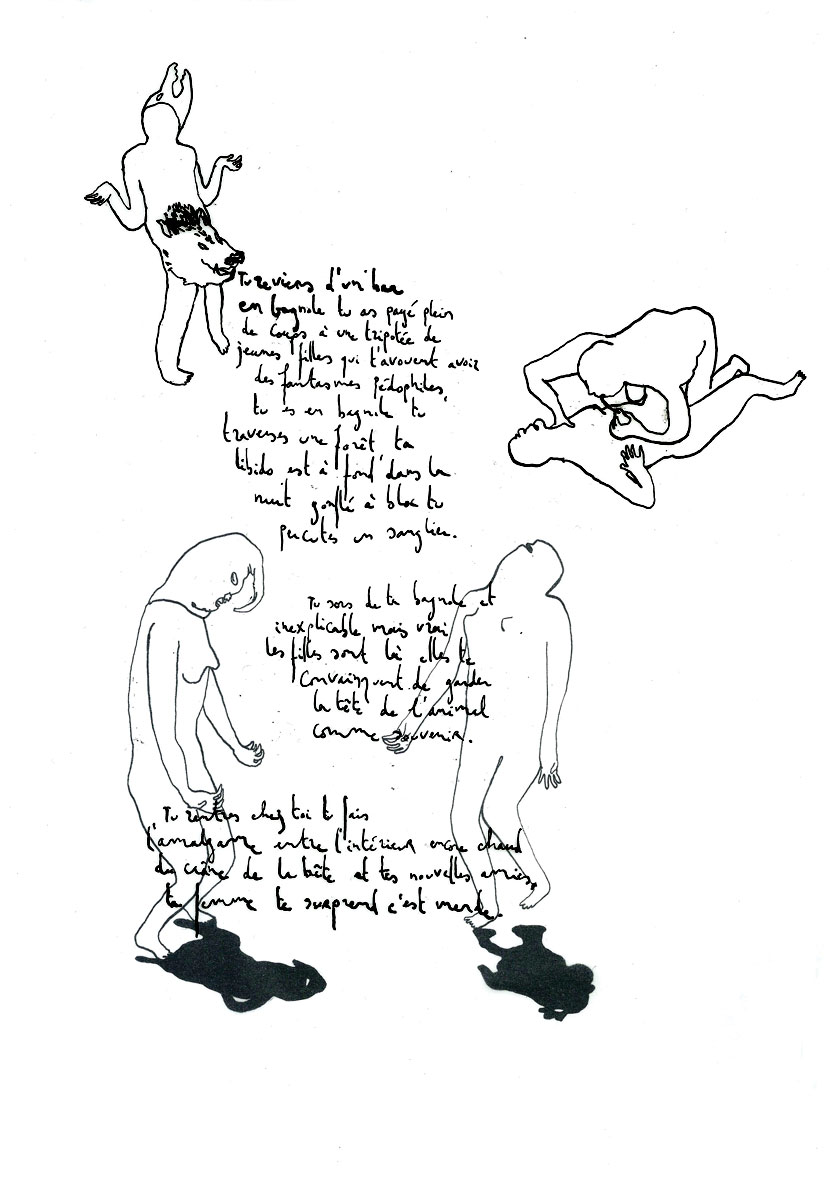 Tu reviens d'un bar
en bagnole tu as payé plein
de coups à une tripotée de
jeunes filles qui t'avouent avoir
des fantasmes pédophiles,
tu es en bagnole tu
traverses une forêt, ta
libido est à fond dans la
nuit gonflé à bloc tu
percutes un sanglier.
Tu sors de ta bagnole et
inexplicable mais vrai
les filles sont là elles te
convainquent de garder
la tête de l'animal
comme souvenir.
Tu rentres chez toi tu fais
l'amalgame entre l'intérieur encore chaud
du crâne de la bête et tes nouvelles amies,
ta femme te surprend c'est merde.